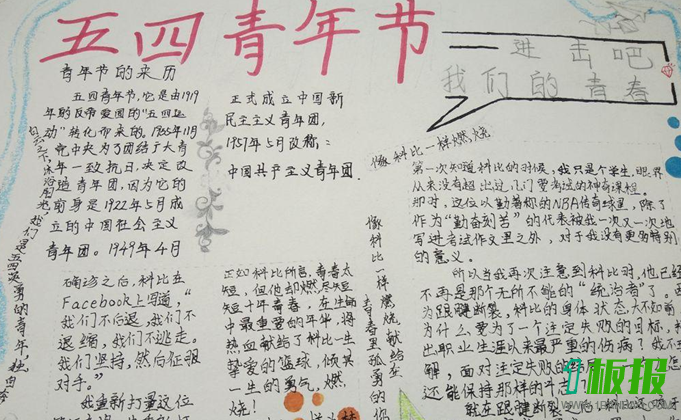 五四青年节
进击吧
我们的青春
青年节的来历
五四青年节,它是由1919
年的反帝爱国的"五四运
动"转化而来的。1935年11月
党中央为了团结广大青
年一致抗日,决定改
造青年团,因为它的
前身是1922年5月成
立的中国社会主义
青年团。1949年4月
正式成立中国新
民主主义青年团,
1957年5月改称:
中国共产主义青年团
像科比一样燃烧
第一次知道科比的时候,我只是个学生,眼界
从来没有超出过几门要考试的神奇课程。
那时,这位以勤著称的NBA传奇球星,除了
作为"勤奋刻苦"的代表被我一次又一次地
写进考试作文里之外,对于我没有更多特别
的意义。
所以当我再次注意到科比时,他已经
不再是那个无所不能的"统治者"了。因
为跟腱断裂,科比的身体状态大不如前
为什么要为了一个注定失败的目标,
出职业生涯以来最严重的伤病?我不
解,面对注定失败的结局
还能保持那样的斗志
就在跟腱断裂
像科比一样燃烧
青春里孤勇的你
确诊之后,科比在
Facebook上写道,"
我们不后退,我们不
退缩,我们不逃走。
我们坚持,然后征服
对手。"
我重新打量这位
正如科比所言,青春太
短,但他却燃尽短
短十年青春,在生命
中最重要的年华,将
热血献给了科比一生
挚爱的篮球,倾其
一生的勇气,燃
烧!
板报